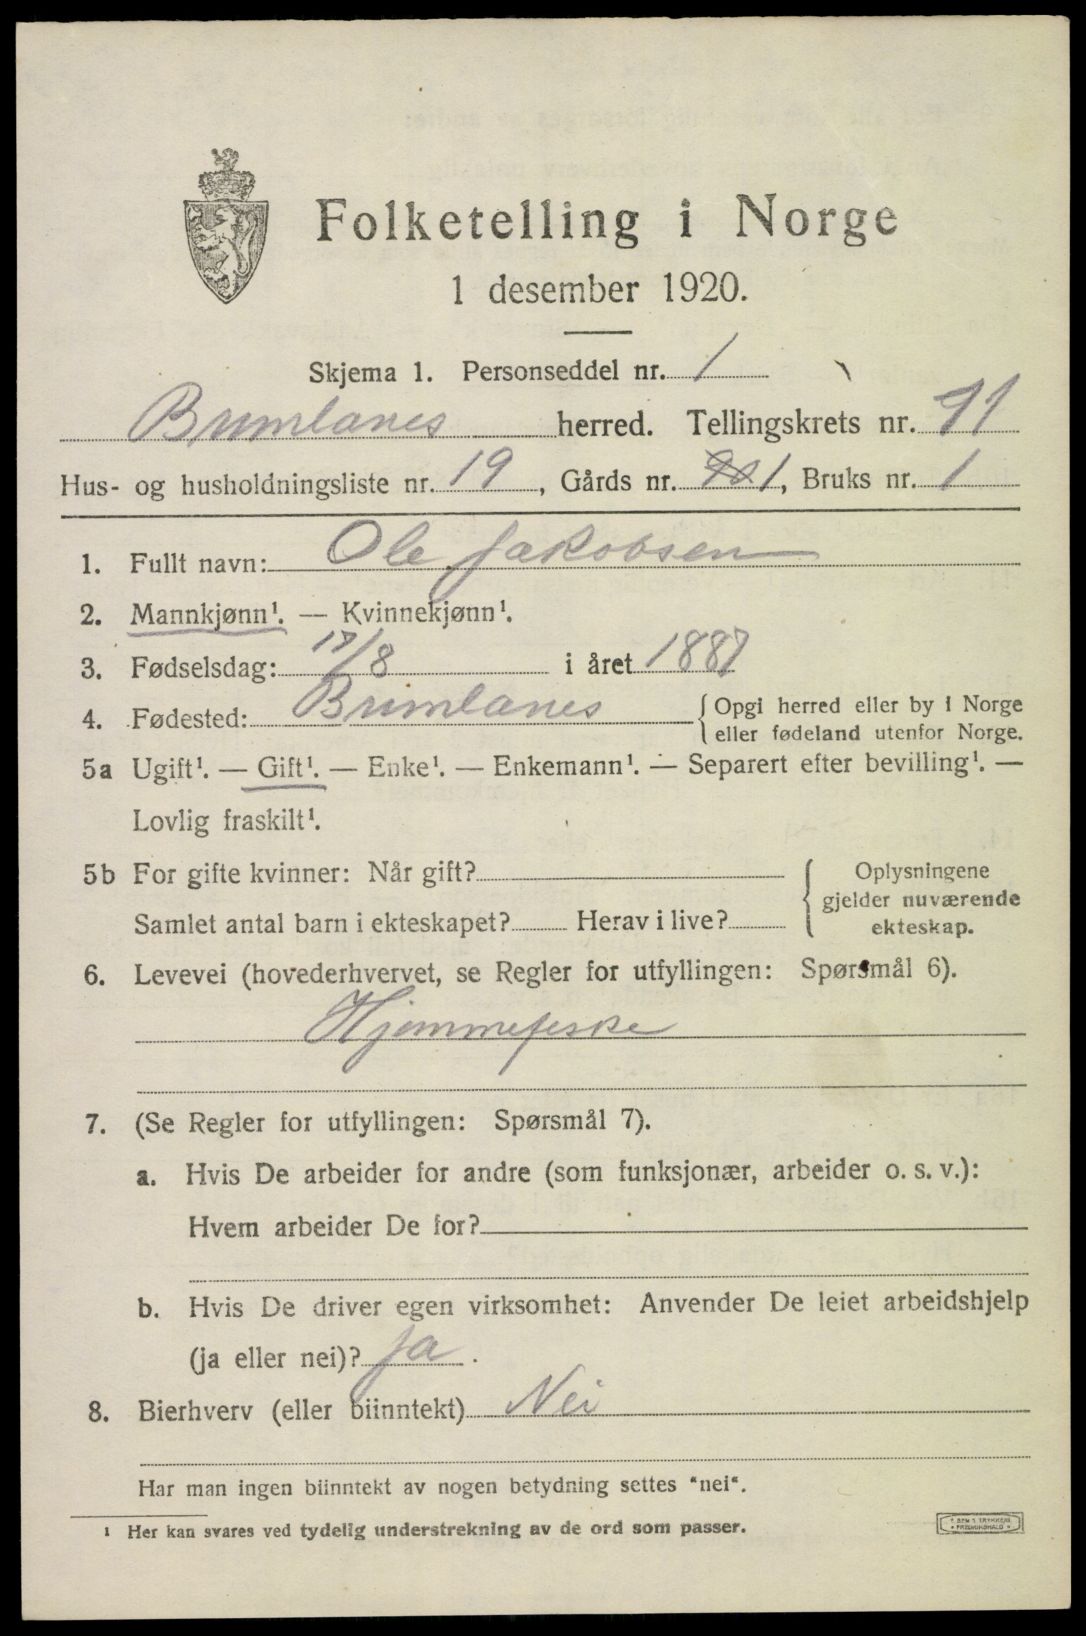 Folketelling i Norge
1 desember 1920.
Skjema 1. Personseddel nr. 1
Brunlanes herred. Tellingskrets nr. 11
Hus- og husholdningsliste nr. 19, Gårds nr. 1, Bruks nr. 1
1. Fullt navn: Ole Jakobsen
2. Mannkjønn¹. — Kvinnekjønn¹.
3. Fødselsdag: 17/8 i året 1887
4. Fødested: Brunlanes {Opgi herred eller by i Norge
eller fødeland utenfor Norge.
5a Ugift¹. — Gift¹. — Enke¹. — Enkemann¹. — Separert efter bevilling¹. —
Lovlig fraskilt¹.
5b For gifte kvinner: Når gift?
Samlet antal barn i ekteskapet? Herav i live?
{Oplysningene
gjelder nuværende
ekteskap.
6. Levevei (hovederhvervet, se Regler for utfyllingen: Spørsmål 6).
Hjemmefeske
7. (Se Regler for utfyllingen: Spørsmål 7).
a. Hvis De arbeider for andre (som funksjonær, arbeider o. s. v.):
Hvem arbeider De for?
b. Hvis De driver egen virksomhet: Anvender De leiet arbeidshjelp
(ja eller nei)? ja.
8. Bierhverv (eller biinntekt) Nei
Har man ingen biinntekt av nogen betydning settes "nei".
¹ Her kan svares ved tydelig understrekning av de ord som passer.